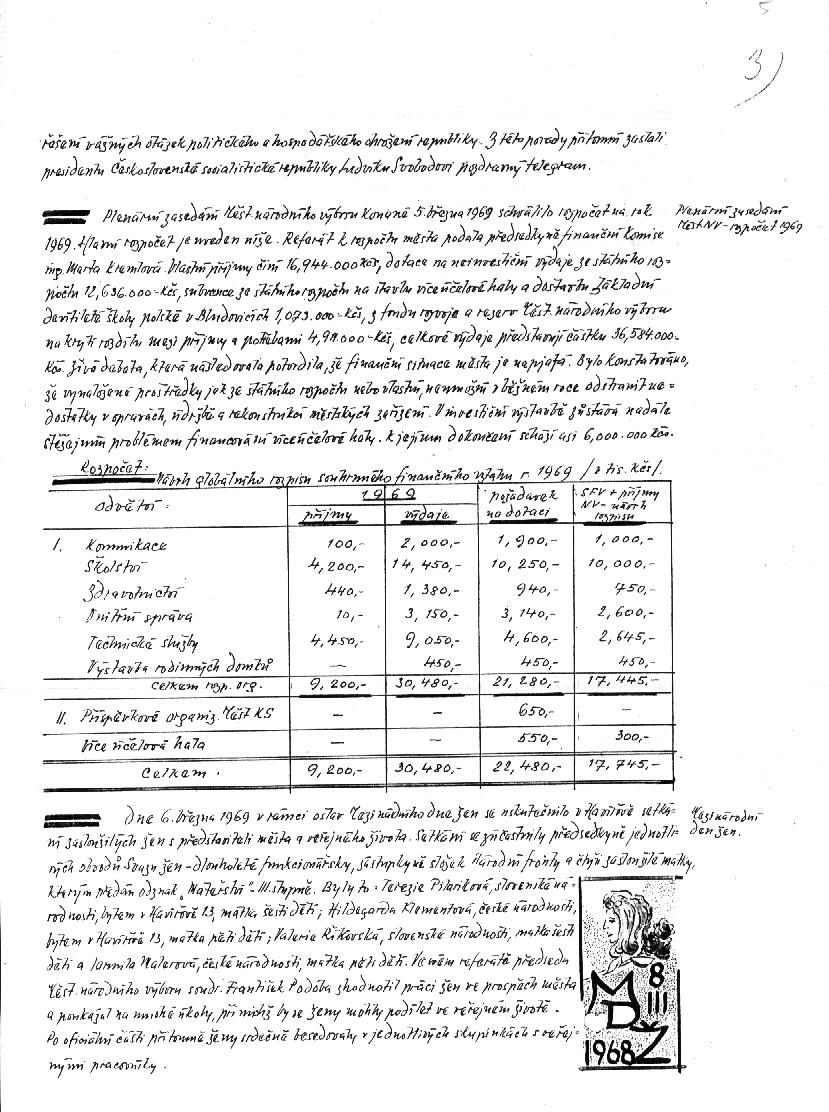 5
3)
řešení vážných otázek politického a hospodářského ohrožení republiky. Z této porady přítomní zaslali
presidentu Československé socialistické republiky Ludvíku Svobodovi pozdravný telegram.
Plenární zasedání Měst. národního výboru konané 5. března 1969 schválilo rozpočet na rok
Plenární zasedání
Měst NV - rozpočet 1969
1969. Hlavní rozpočet je uveden níže. Referát k rozpočtu města podala předsedkyně finanční komise
ing. Marta Kremlová. Vlastní příjmy činí 16,944.000 Kčs, dotace na neinvestiční výdaje ze státního roz=
počtu 12,636.000 - Kčs, subvence ze státního rozpočtu na stavbu víceúčelové haly a dostavbu Základní
devítileté školy polské v Bludovicích 1,073.000 - Kčs, z fondu rozvoje a rezerv Měst. národního výboru
na krytí rozdílu mezi příjmy a potřebami 4,911.000 - Kčs, celkové výdaje představují částku 36,584.000-
Kčs. Živá debata, která následovala potvrdila, že finanční situace města je napjatá. Bylo konstatováno,
že vynaložené prostředky jak ze státního rozpočtu nebo vlastní, neumožní v běžném roce odstranit ne=
dostatky v opravách, údržbě a rekonstrukci městských zařízení. V investiční výstavbě zůstává nadále
stěžejním problémem financování víceúčelové haly. K jejímu dokončení schází asi 6,000.000 Kčs.
Rozpočet:
Návrh globálního rozpisu souhrnného finančního vztahu r. 1969 /v tis. Kčs/.
Odvětví: 1969 příjmy výdaje požadavek na dotaci SFV + příjmy NV - návrh rozpisu
I. Komunikace 100,- 2,000,- 1,900,- 1,000,-
Školství 4,200,- 14,450,- 10,250,- 10,000,-
Zdravotnictví 440,- 1,380,- 940,- 750,-
Vnitřní správa 10,- 3,150,- 3,140,- 2,600,-
Technické služby 4,450,- 9,050,- 4,600,- 2,645,-
Výstavba rodinných domků — 450,- 450,- 450,-
Celkem rozp. org. 9,200,- 30,480,- 21,280,- 17,445,-
II. Příspěvkové organiz. Měst KS — — 650,- —
Více účelová hala — — 550,- 300,-
Celkem. 9,200,- 30,480,- 22,480,- 17,745,-
Dne 6. března 1969 v rámci oslav Mezinárodního dne žen se uskutečnilo v Havířově setká-
Mezinárodní
den žen.
ní zasloužilých žen s představiteli města a veřejného života. Setkání se zúčastnily předsedkyně jednotli-
vých obvodů Svazu žen - dlouholeté funkcionářky, zástupkyně složek Národní fronty a čtyři zasloužilé matky,
kterým předán odznak „Mateřství" - III. stupně. Byly to: Terezie Pilariková, slovenské ná-
rodnosti, bytem v Havířově 13, matka šesti dětí; Hildegarda Klementová, české národnosti,
bytem v Havířově 13, matka pěti dětí; Valerie Řikovská, slovenské národnosti, matka šesti
dětí a Jarmila Walerová, české národnosti, matka pěti dětí. Ve svém referátě předseda
Měst. národního výboru soudr. František Podoba zhodnotil práci žen ve prospěch města
a poukázal na mnohé úkoly, při nichž by se ženy mohly podílet ve veřejném životě.
Po oficiální části přítomné ženy srdečně besedovaly v jednotlivých skupinkách s veřej-
nými pracovníky.
8
III
MDŽ
1968